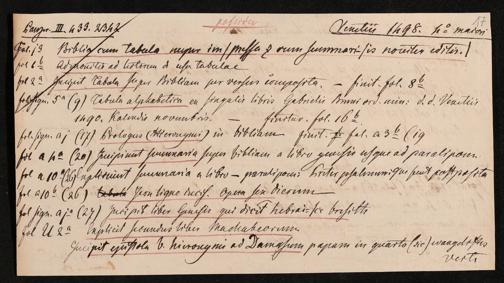 Panzer III. 433. 2342 possidet Venetiis 1498. 4° maiori 17
fol. j a Biblia cum tabula nuper impressa & cum summariis noviter editis.
fol. 1 b Admonitio ad lectorem de usu tabulae
fol 2 a Incipit Tabula super Bibliam per versus composita. — finit. fol. 8 b
fol. sign. 5 a (9) Tabula alphabetica ex singulis libris Gabrielis Bruni ord. min. d.d. Venetiis
1490. Kalendis novembris. — finitur. fol. 16 b
fol. sign. a j (17) Prologus (Hieronymi) in bibliam finit fol. a 3 b (19
fol a 4 a (20) Incipiunt summaria super bibliam a libro genesis usque ad paralipom
fol a 10 summaria a libro — paralipom.
fol a 10 b (26) opera sex dierum
fol sign. a j a (27) Incipit liber Genesis qui dicit hebraice bresith
fol U 2 a Explicit secundus liber Machabeorum
Incipit epistola b. hieronymi ad Damasum papam in quatuor (sic) evangelistas
verte